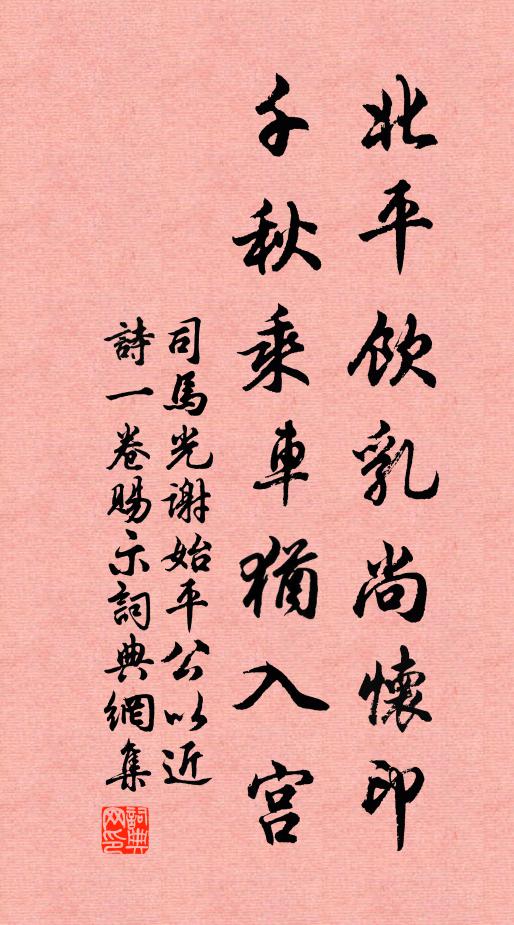 北平飲乳尚懷印
千秋乘車猶入宮
司馬光謝始平公以近
詩一卷賜示詞典網集
詞典网印